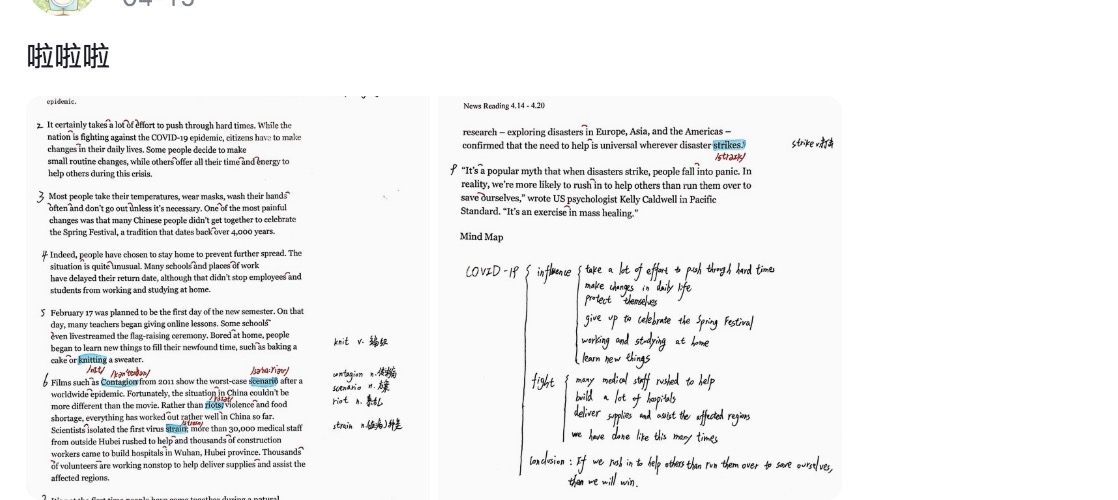 04-15
啦啦啦
epidemic.
2 It certainly takes a lot of effort to push through hard times. While the
nation is fighting against the COVID-19 epidemic, citizens have to make
changes in their daily lives. Some people decide to make
small routine changes, while others offer all their time and energy to
help others during this crisis.
3 Most people take their temperatures, wear masks, wash their hands
often and don't go out unless it's necessary. One of the most painful
changes was that many Chinese people didn't get together to celebrate
the Spring Festival, a tradition that dates back over 4,000 years.
4 Indeed, people have chosen to stay home to prevent further spread. The
situation is quite unusual. Many schools and places of work
have delayed their return date, although that didn't stop employees and
students from working and studying at home.
5 February 17 was planned to be the first day of the new semester. On that
day, many teachers began giving online lessons. Some schools
even livestreamed the flag-raising ceremony. Bored at home, people
began to learn new things to fill their newfound time, such as baking a
cake or knitting a sweater.
knit v. 编织
6 Films such as Contagion from 2011 show the worst-case scenario after a
worldwide epidemic. Fortunately, the situation in China couldn't be
more different than the movie. Rather than riots, violence and food
shortage, everything has worked out rather well in China so far.
Scientists isolated the first virus strain; more than 30,000 medical staff
from outside Hubei rushed to help and thousands of construction
workers came to build hospitals in Wuhan, Hubei province. Thousands
of volunteers are working nonstop to help deliver supplies and assist the
affected regions.
contagion n.
scenario n.
riot n.
strain n.
News Reading 4.14 - 4.20
research – exploring disasters in Europe, Asia, and the Americas –
confirmed that the need to help is universal wherever disaster strikes.
strike v.
9 "It's a popular myth that when disasters strike, people fall into panic. In
reality, we're more likely to rush in to help others than run them over to
save ourselves," wrote US psychologist Kelly Caldwell in Pacific
Standard. "It's an exercise in mass healing."
Mind Map
COVID-19
influence
take a lot of effort to push through hard times
make changes in daily life
protect themselves
give up to celebrate the Spring Festival
working and studying at home
learn new things
fight
many medical staff rushed to help
build a lot of hospitals
deliver supplies and assist the affected regions
we have done like this many times
Conclusion : If we rush in to help others than run them over to save ourselves,
then we will win.